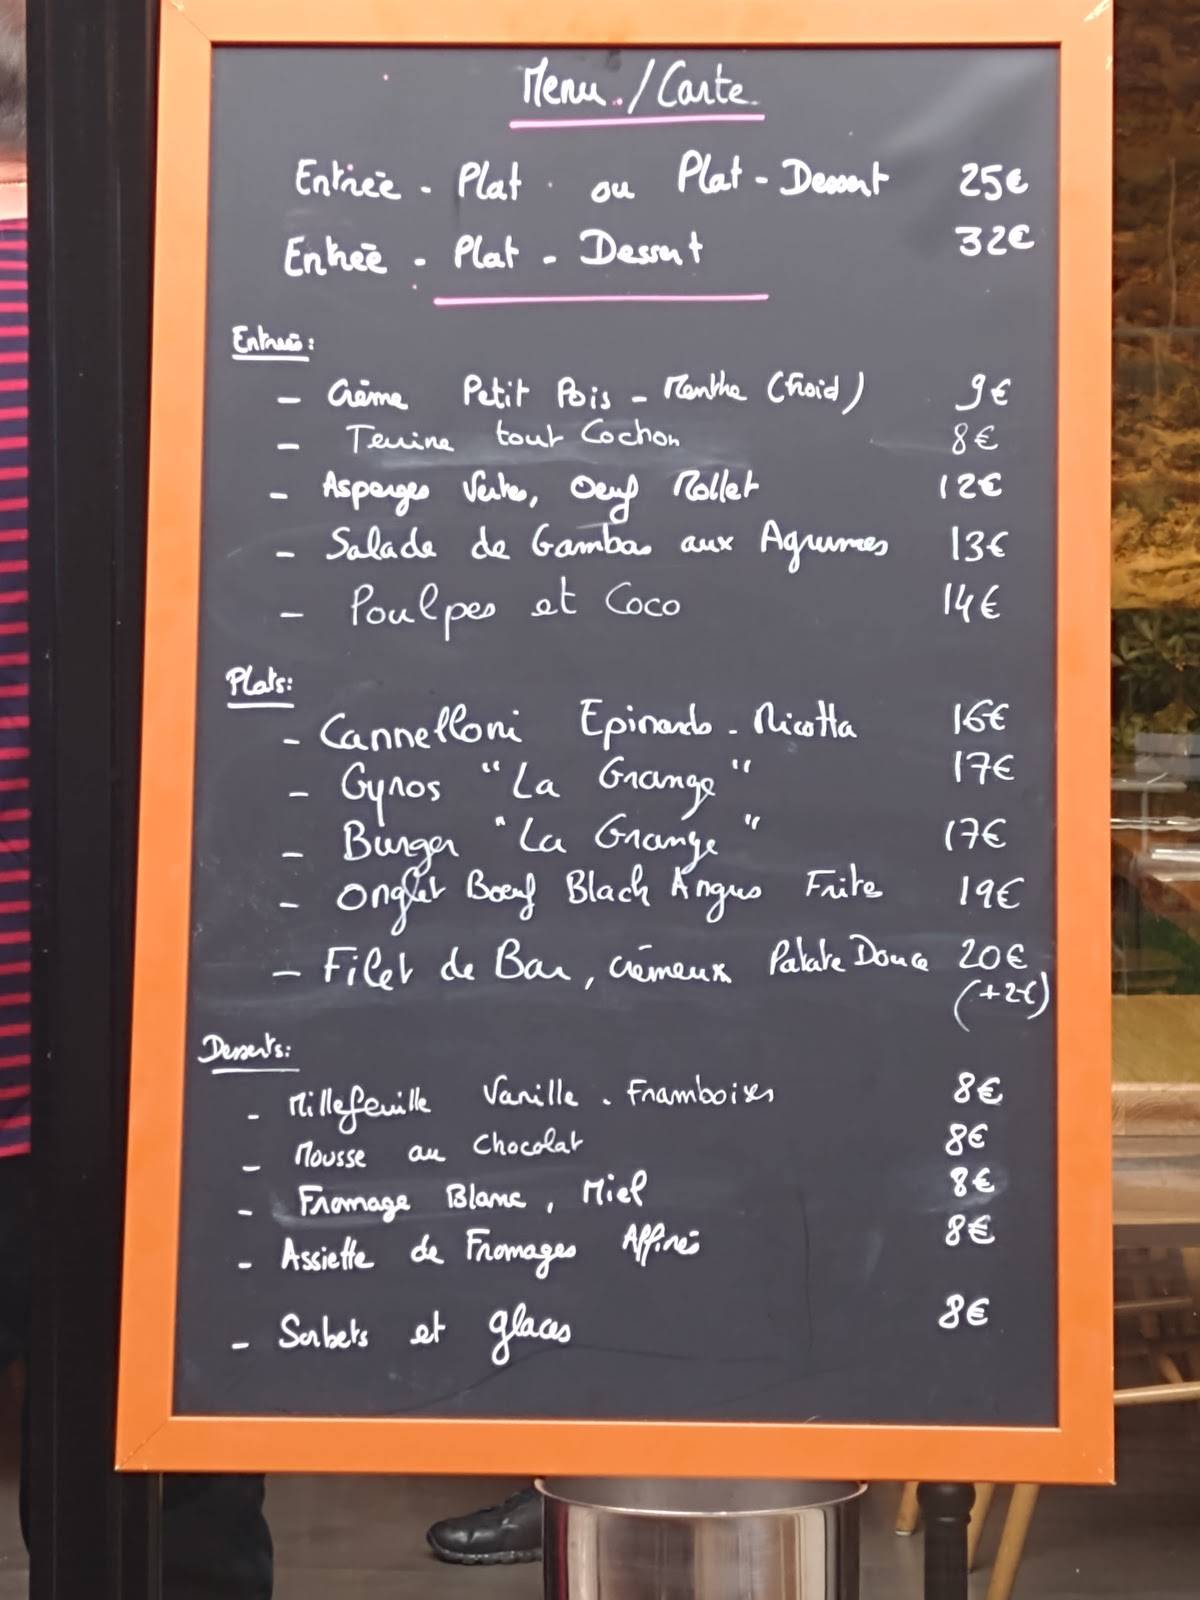 Menu./Carte.
Entrée - Plat . ou Plat - Dessert 25€
Entrée - Plat - Dessert 32€
Entrées:
- Crème Petit Pois - Menthe (froid) 9€
- Terrine tout Cochon 8€
- Asperges Vertes, Oeuf Mollet 12€
- Salade de Gambas aux Agrumes 13€
- Poulpes et Coco 14€
Plats:
- Cannelloni Epinards - Ricotta 16€
- Gyros "La Grange" 17€
- Burger "La Grange" 17€
- Onglet Boeuf Black Angus Frites 19€
- Filet de Bar, crémeux Patate Douce 20€
(+2€)
Desserts:
- Millefeuille Vanille - Framboises 8€
- Mousse au Chocolat 8€
- Fromage Blanc, Miel 8€
- Assiette de Fromages Affinés 8€
- Sorbets et glaces 8€